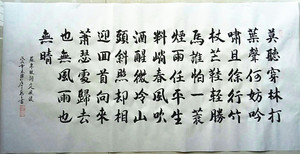 莫聽穿林打
葉聲何妨吟
嘯且徐行竹
杖芒鞋輕勝
馬誰怕一蓑
煙雨任平生
料峭春風吹
酒醒微冷山
頭斜照却相
迎回首向來
蕭瑟處歸去
也無風雨也
無晴